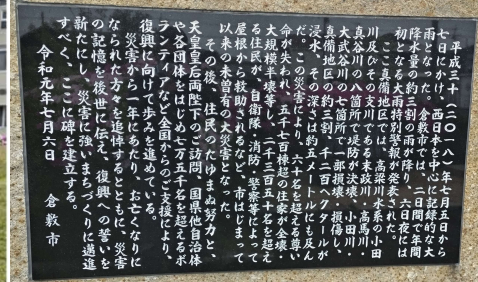 平成三十(二〇一八)年七月五日から
七日にかけ、西日本を中心に記録的な大
雨となった。倉敷では、二日間で年間
降水量の約三割の雨が降り、六日夜には
初となる大雨特別警報が発表された。
ここ真備地区では、高梁川水系の小田
川及びその支川である末政川、高馬川、
真谷川の八箇所で堤防が決壊、小田川、
大武谷川の七箇所で一部損壊、損傷し、
真備地区の約三割、千二百ヘクタールが
浸水、その深さは約五メートルにも及ん
だ。この災害により、六十名を超える尊い
命が失われ、五千七百棟超の住家が全壊、
大規模半壊等し、二千三百五十名を超え
る住民が、自衛隊、消防、警察等によって
屋根から救助されるなど、市はじまって
以来の未曽有の大災害となった。
その後、住民のたゆまぬ努力と、
天皇皇后両陛下のご訪問、国県他自治体
や各団体をはじめ七万五千名を超えるボ
ランティアなど全国からのご支援により、
復興に向けて歩みを進めている。
災害から一年にあたり、お亡くなりに
なられた方々を追悼するとともに、災害
の記憶を後世に伝え、復興への誓いを
新たにし、災害に強いまちづくりに邁進
すべく、ここに碑を建立する。
令和元年七月六日 倉敷市